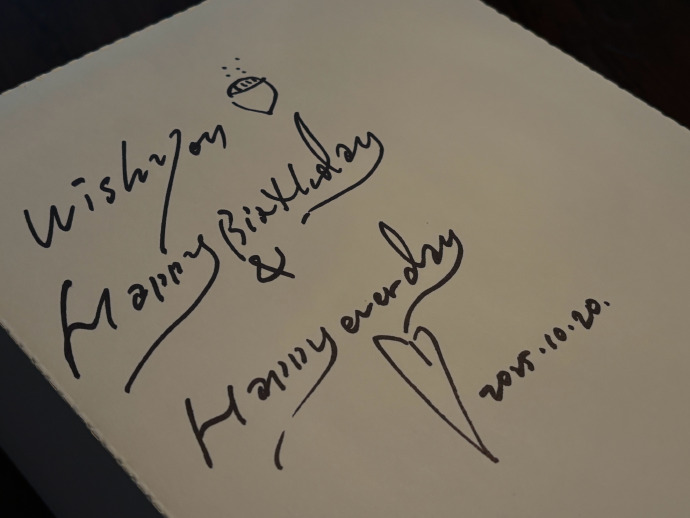 Wish you
Happy Birthday
&
Happy everday
2025.10.20.